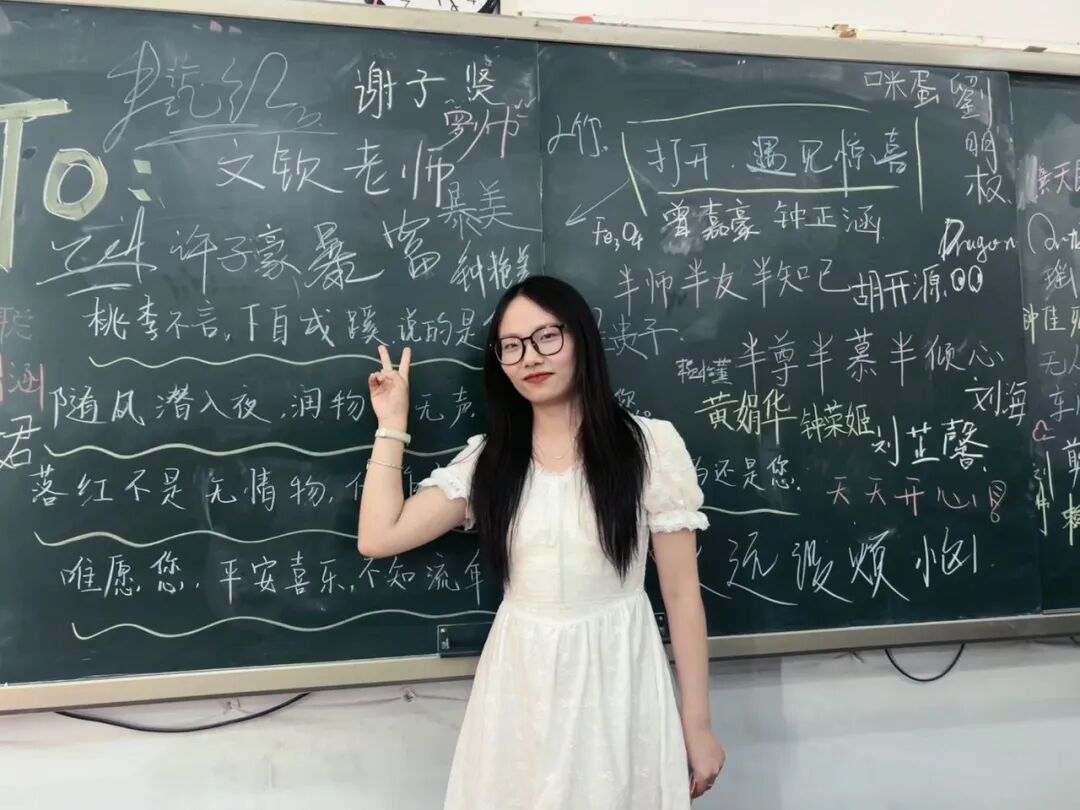 谢子贤
TO:
文钦老师
暴美
许子豪 暴富
钟艳美
桃李不言,下自成蹊,说的是 贵子.
随风潜入夜,润物 无声, 您。
落红不是无情物, 还是您.
唯愿您,平安喜乐,不知流年
远没烦恼
咪蛋
劉明权
打开.遇见惊喜
Fe₃O₄
曾嘉豪 钟正涵
Dragon
半师半友半知己
胡开源
半尊半慕半倾心
刘海
黄娟华
钟荣姬
刘芷馨
天天开心
钟佳
无人
君
涵